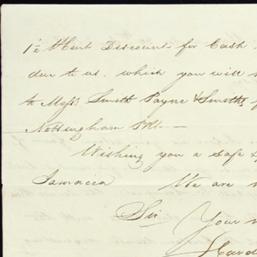 1½ P Cent Discount for Cash
due to us. which you will
to Messrs Smith Payne & Smiths
Nottingham
Wishing you a safe
Jamaica We are
Sir Your